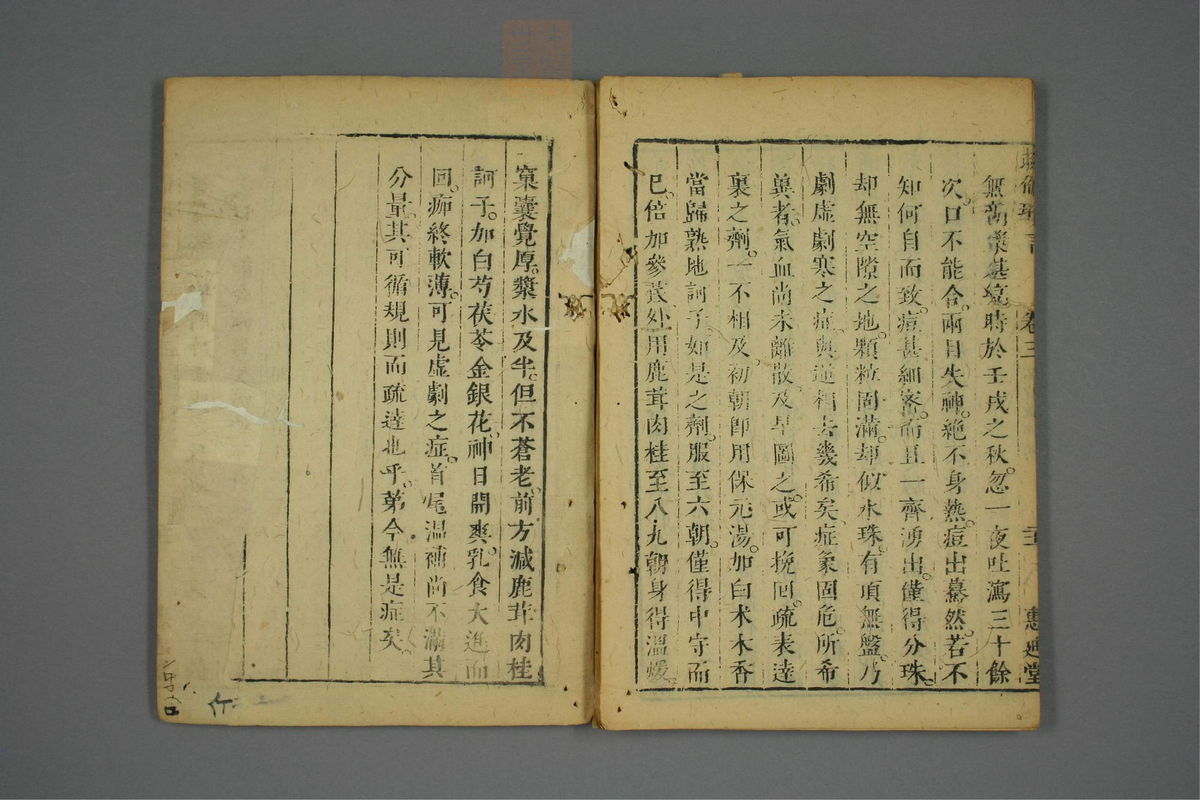 卷三 惠迪堂
時於壬戌之秋。忽一夜吐瀉三十餘
次。口不能合。兩目失神。絶不身熱。痘出驀然。若不
知何自而致。痘甚細密。而且一齊湧出。僅得分珠。
却無空隙之地。顆粒固滿。却似水珠。有頂無盤。乃
劇虛劇寒之症。與運褐去幾希矣。症象固危。所希
冀者。氣血尚未離散。及早圖之。或可挽囘。疏表達
裏之劑。一不相及。初朝卽用保元湯。加白术木香
當歸熟地訶子。如是之劑。服至六朝。僅得中守而
已。倍加參芪。外用鹿茸肉桂。至八九朝。身得溫煖。
窠囊覺厚。漿水及半。但不蒼老。前方減鹿茸肉桂
訶子。加白芍茯苓金銀花。神日開爽。乳食大進。而
囘。痂終軟薄。可見虛劇之症。首尾溫補。尚不滿其
分量。其可循規則而疏達也乎。第今無是症矣。